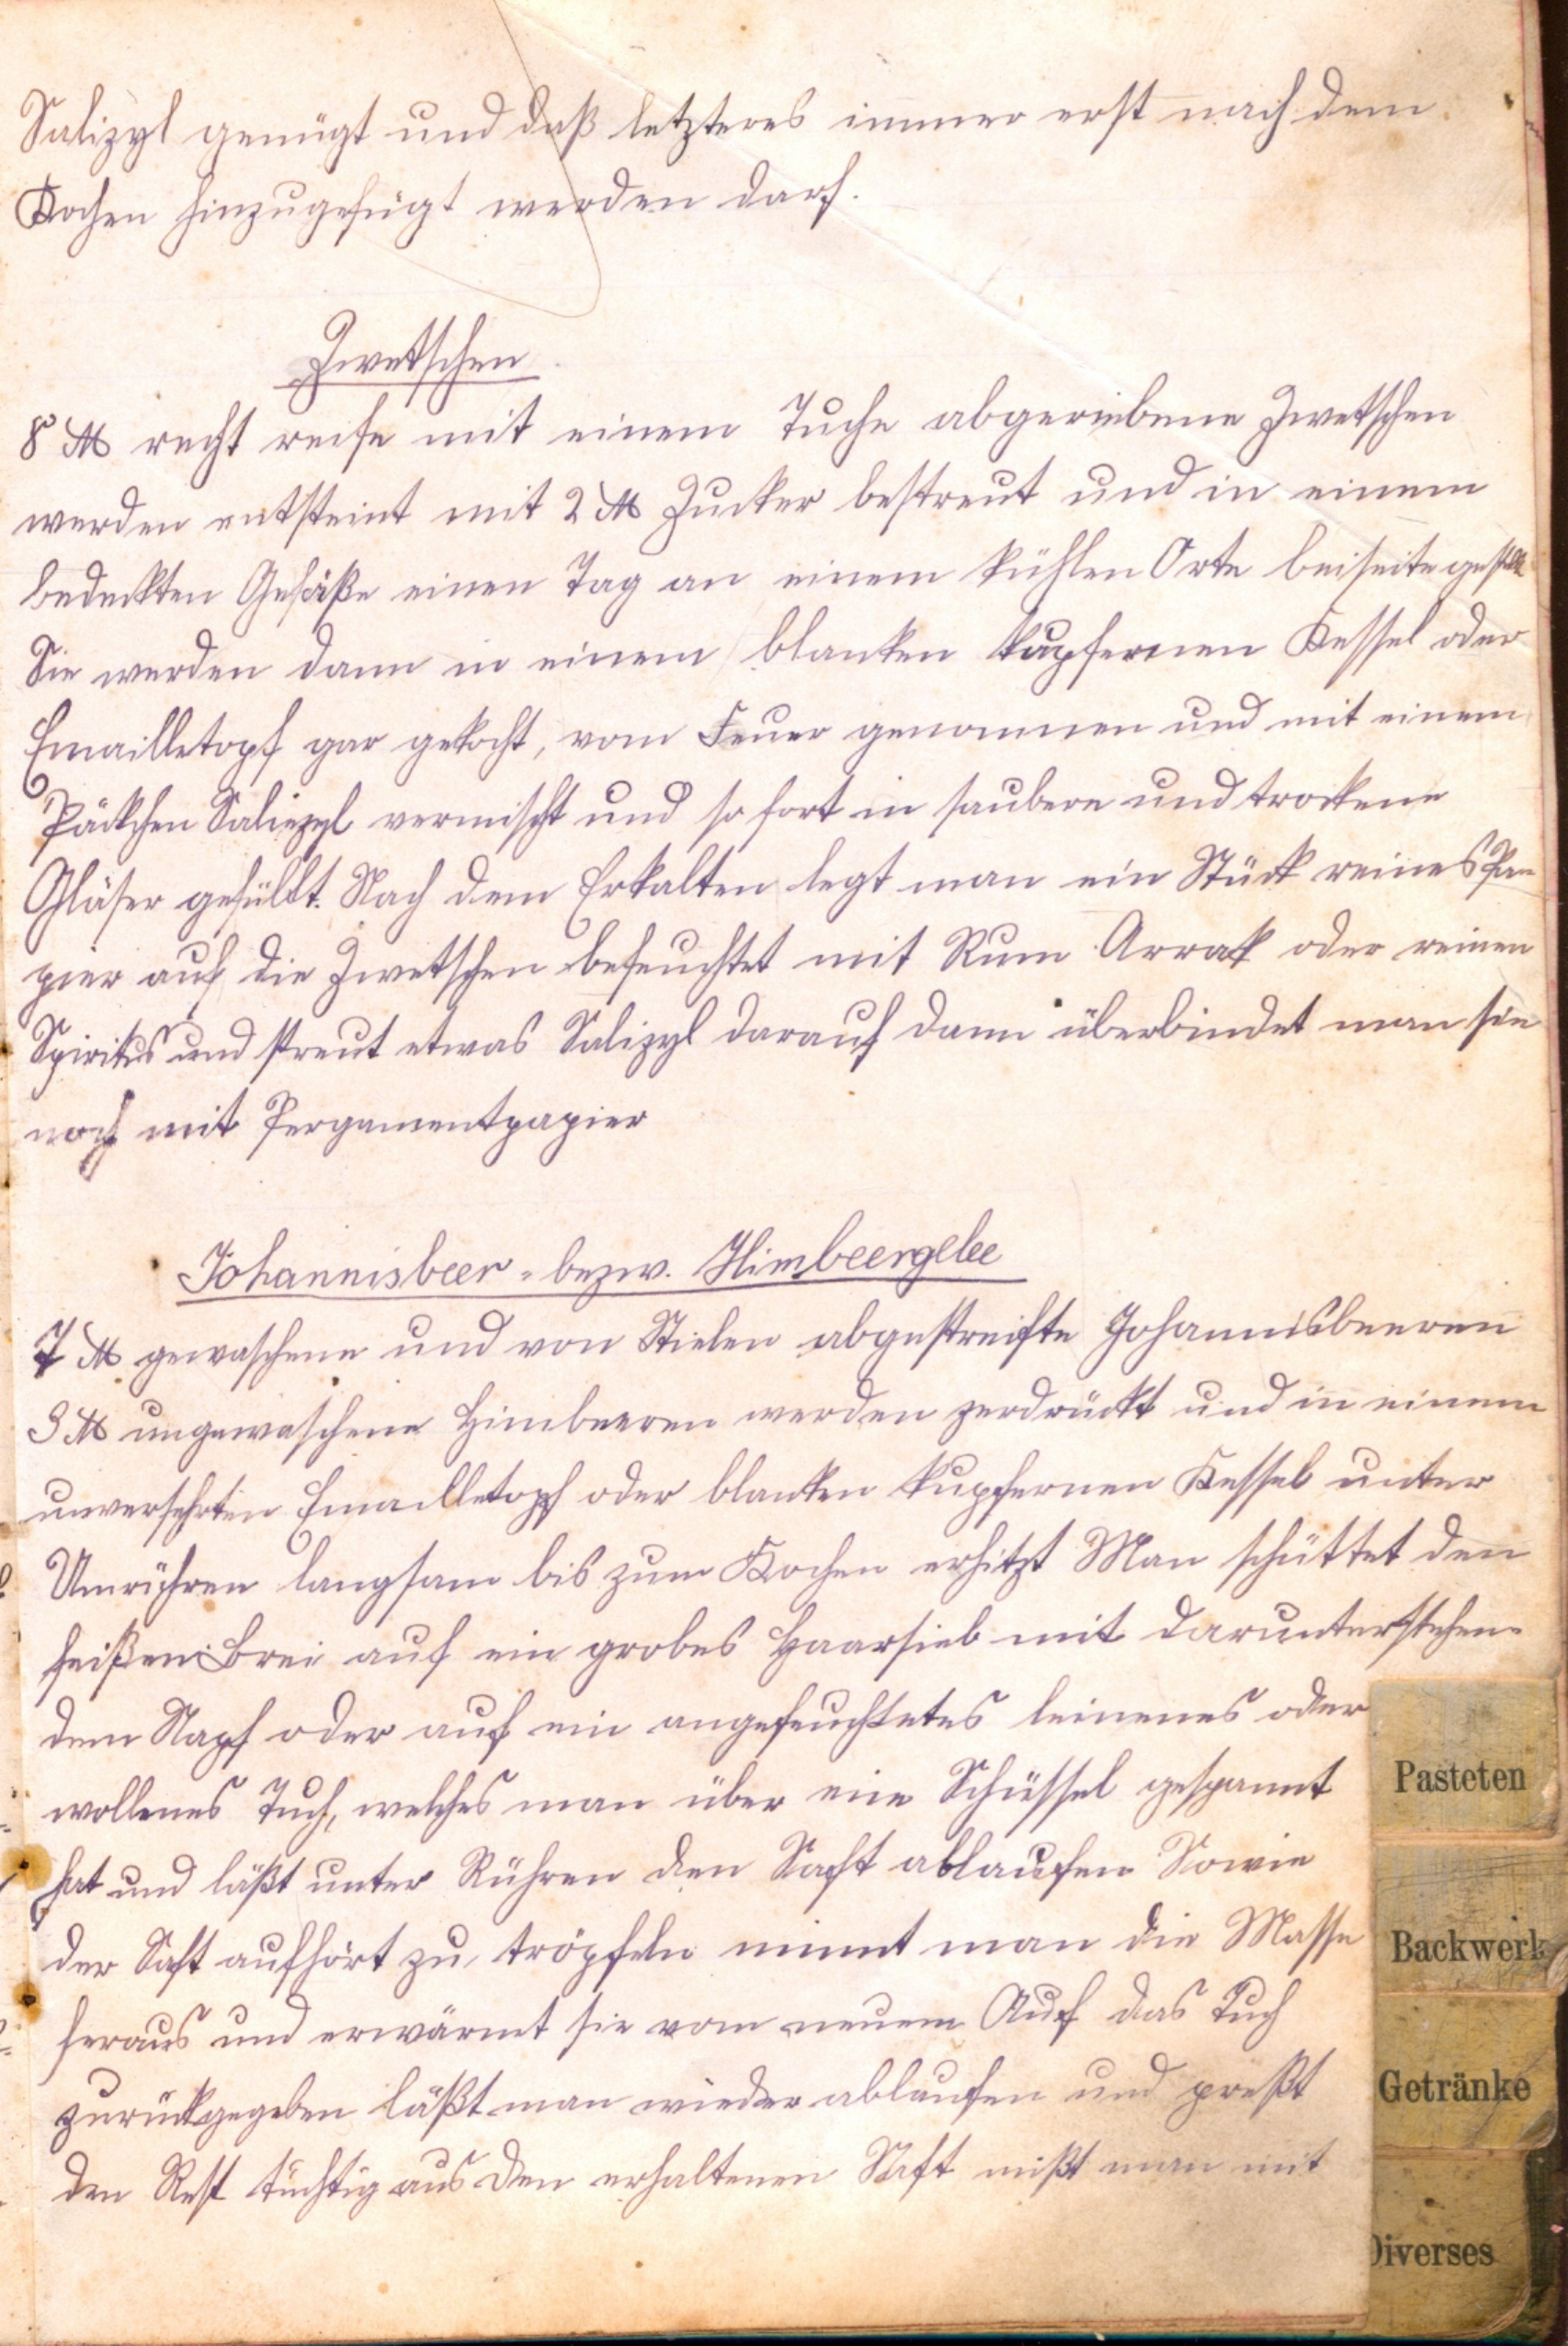 Salizyl genügt und daß letzteres immer erst nach dem
Kochen hinzugefügt werden darf.
Zwetschen
8 ℔ recht reife mit einem Tuche abgeriebene Zwetschen
werden entsteint mit 2 ℔ Zucker bestreut und in einem
bedeckten Gefäße einen Tag an einem kühlen Orte beiseite gestellt
Sie werden dann in einem blanken kupfernen Kessel oder
Emailletopf gar gekocht, vom Feuer genommen und mit einem
Päckchen Salizyl vermischt und sofort in saubere und trockene
Gläser gefüllt. Nach dem Erkalten legt man ein Stück reines Pa-
pier auf die Zwetschen befeuchtet mit Rum Arrak oder reinen
Spiritus und streut etwas Salizyl darauf dann überbindet man sie
noch mit Pergamentpapier
Johannisbeer- bezw. Himbeergelee
7 ℔ gewaschene und von Stielen abgestreifte Johannisbeeren
3 ℔ ungewaschene Himbeeren werden zerdrückt und in einem
unversehrten Emailletopf oder blanken kupfernen Kessel unter
Umrühren langsam bis zum Kochen erhitzt Man schüttet den
heißen Brei auf ein grobes Haarsieb mit darunterstehen-
dem Napf oder auf ein angefeuchtetes leinenes oder
wollenes Tuch, welches man über eine Schüssel gespannt
hat und läßt unter Rühren den Saft ablaufen Sowie
der Saft aufhört zu tröpfeln nimmt man die Masse
heraus und erwärmt sie vom neuem Auf das Tuch
zurückgegeben läßt man wieder ablaufen und preßt
den Rest tüchtig aus den erhaltenen Saft mißt man mit
Pasteten
Backwerk
Getränke
Diverses